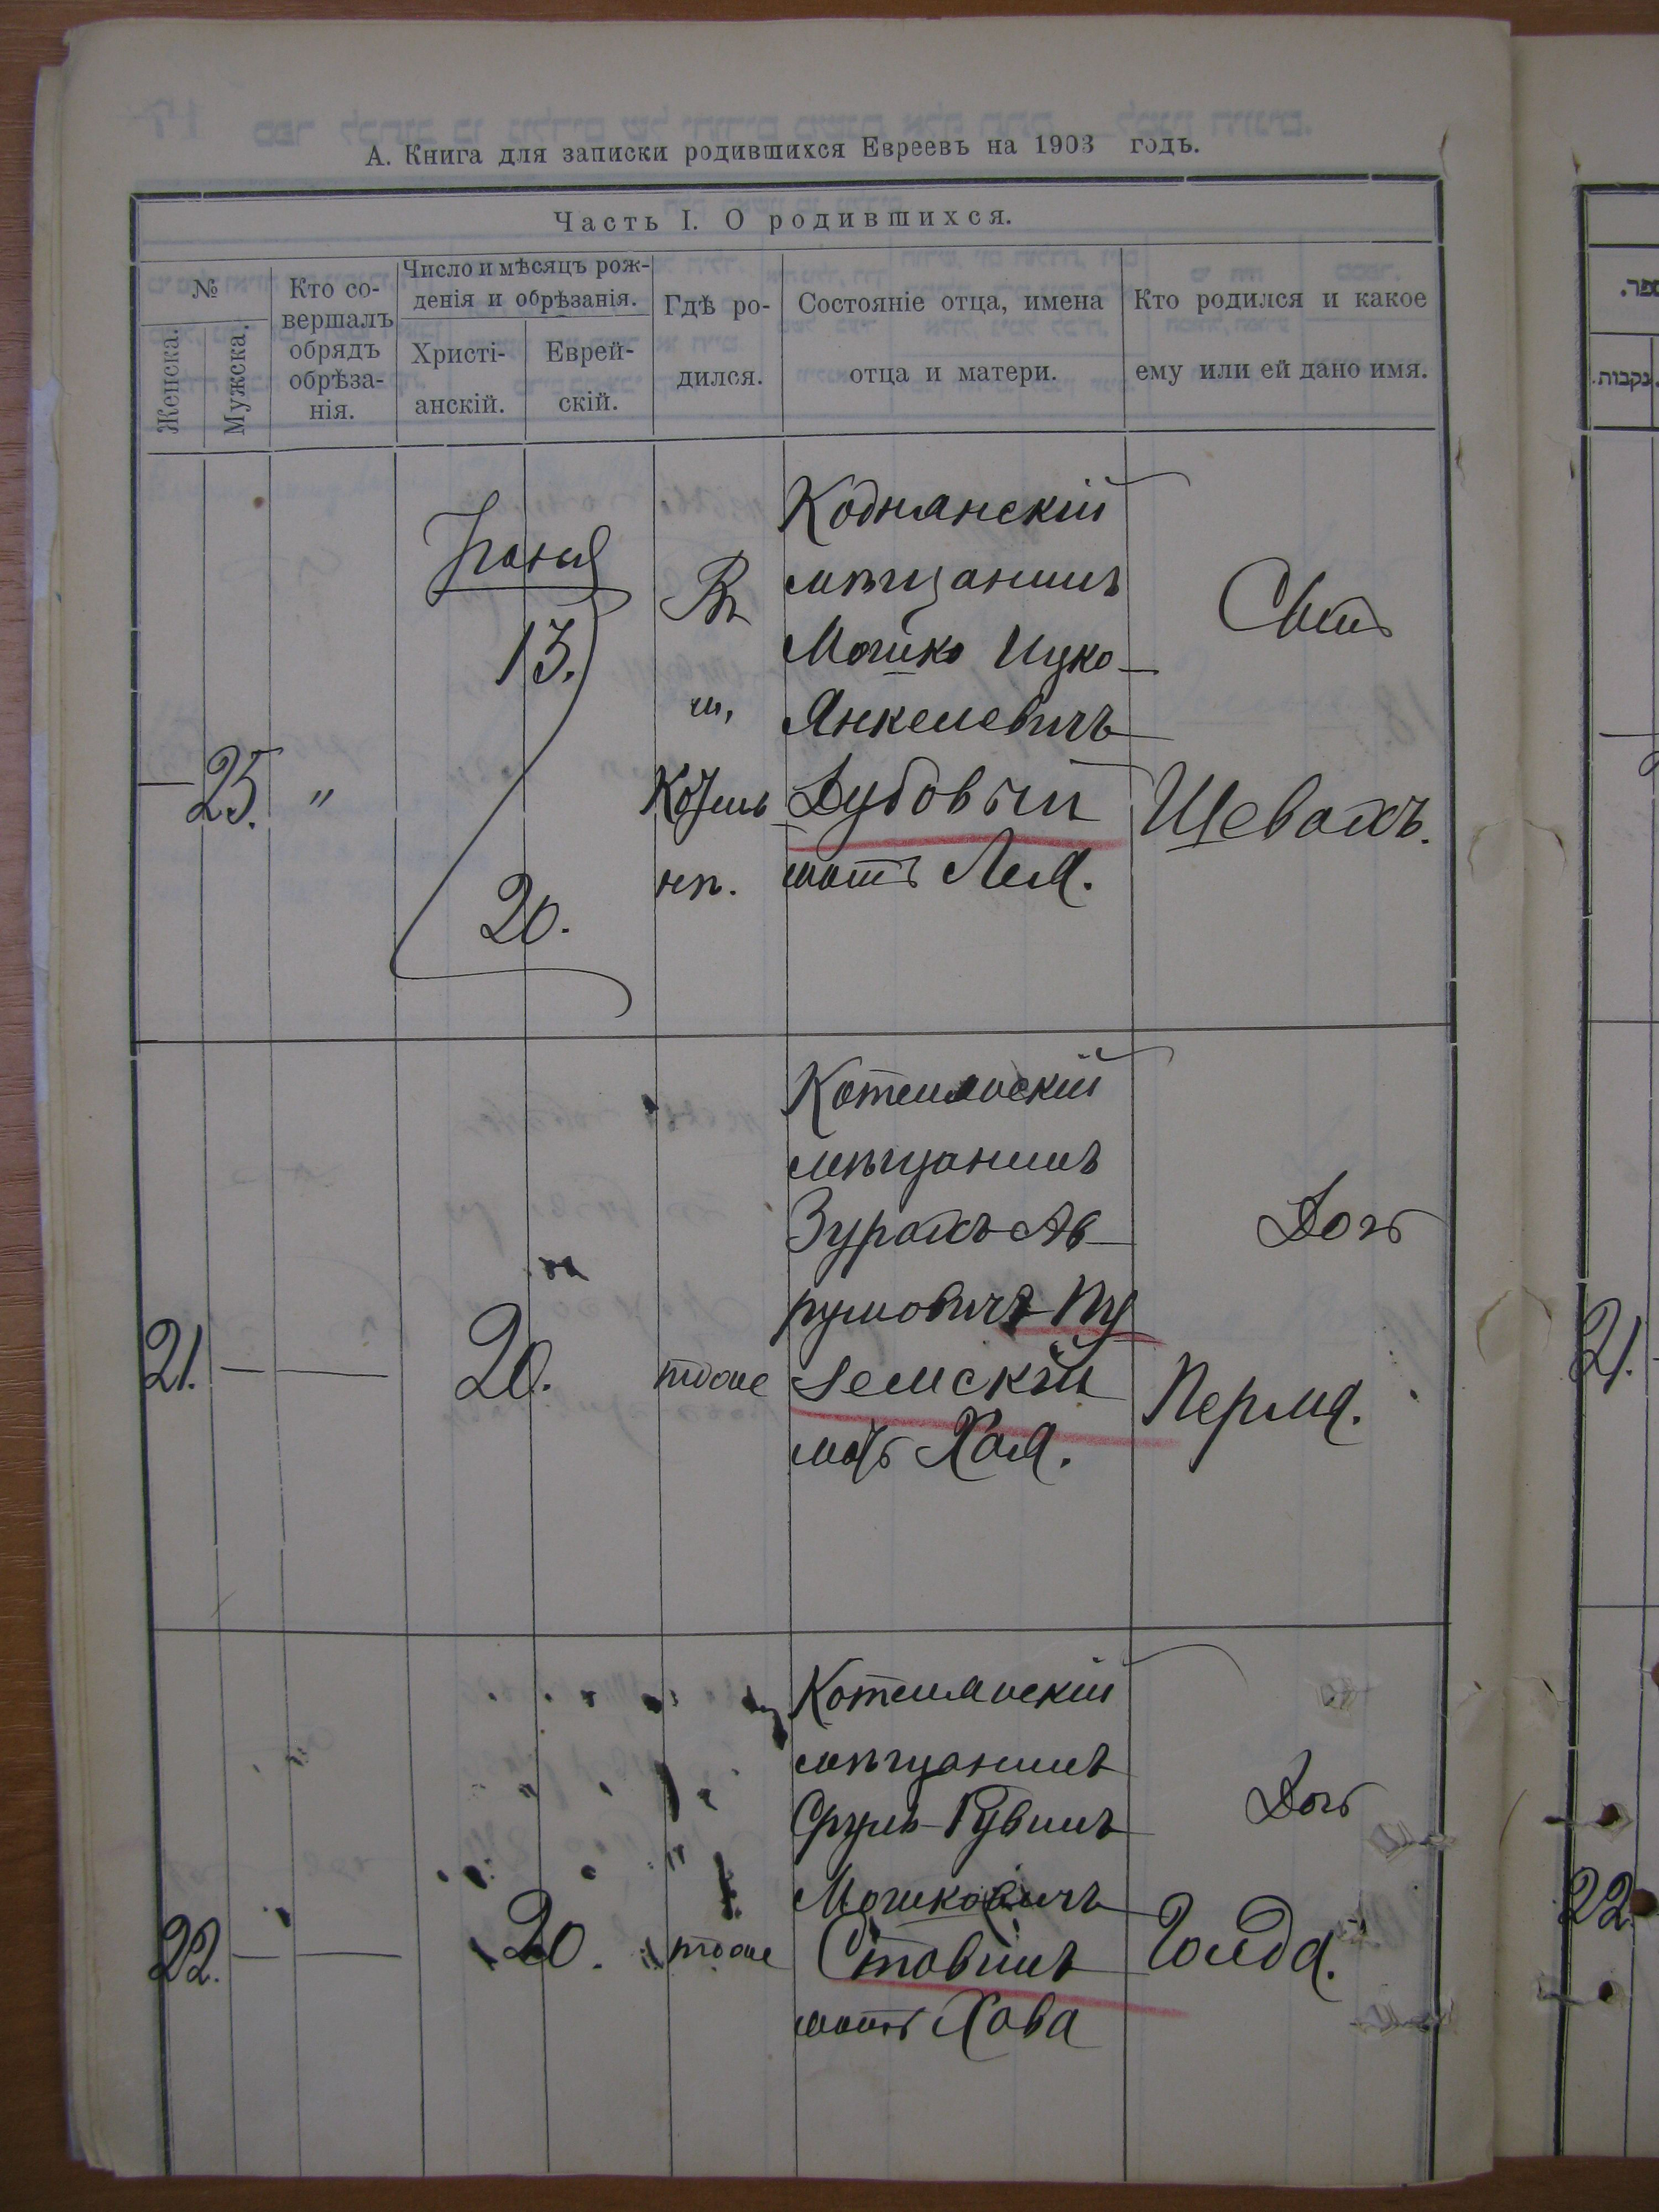 А. Книга для записки родившихся Евреевъ на 1903 годъ.
Часть I. О родившихся.
№
Женска.
Мужска.
Кто со-
вершалъ
обрядъ
обрѣза-
нія.
Число и мѣсяцъ рож-
денія и обрѣзанія.
Христі-
анскій.
Еврей-
скій.
Гдѣ ро-
дился.
Состояніе отца, имена
отца и матери.
Кто родился и какое
ему или ей дано имя.
— 25. "
13.
20.
Въ
м.
Котель
нѣ.
Коднянскій
мѣщанинъ
Мошко Ицко-
Янкелевичъ
Дубовый
мать Лея.
Сынъ
Шевахъ.
21. — —
20.
тоже
Котелянскій
мѣщанинъ
Зурахъ Ав-
румовичъ Пу
земскій
мать Хая.
Дочь
Перма.
22. — —
20.
тоже
Котелянскій
мѣщанинъ
Сруль-Рувинъ
Мошковичъ
Ставинъ
мать Хава
Дочь
Голда.
ספר.
נקבות.
21.
22.